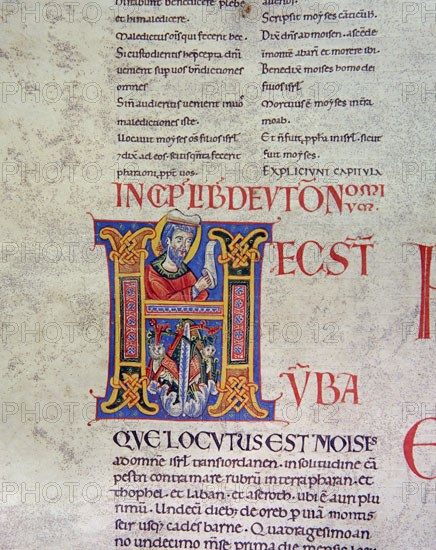 hirabunt benedicere plebe
et himaledicere.
Maledictus om̄s qui fecerit hec.
Si custodientes h̄ precepta dn̄i
uenient sup̄ uos bn̄dictiones
omnes
Sin̄ audientes uenient in uos
maledictiones iste.
Uocauit moẏses om̄s filios isrl̄
⁊ dix̄ ad eos.
pharaoni, uos
Scripsit moẏses cāticū h.
Dix̄ dn̄s ad moẏsen. ascēde
montē abarī et morere ibi.
Benedix̄ moises homo dei
filios isrl̄
Mortuus ē moẏses in t̄ra
moab.
Et n̄ fuit. pph̄a in isrl̄. sicut
fuit moẏses.
EXPLICIUNT CAPITULA
INCĪP̄ LIB̄ DEUTŌNOMI
UM.
HEC ST̄
ŪBA
QVE LOCVTVS EST MOISES
ad omnē isrl̄ trans iordanen. in solitudine cā
pestri contra mare rubrū int̄ pharan. et
thophel. et laban. et aseroth. ubi ē auri pluri
rimū. Undeci dieb; de oreb p̄ uiā montis
seir usq; cades barne. Quadragesimo an
no undecimo mēse. prima die mensis